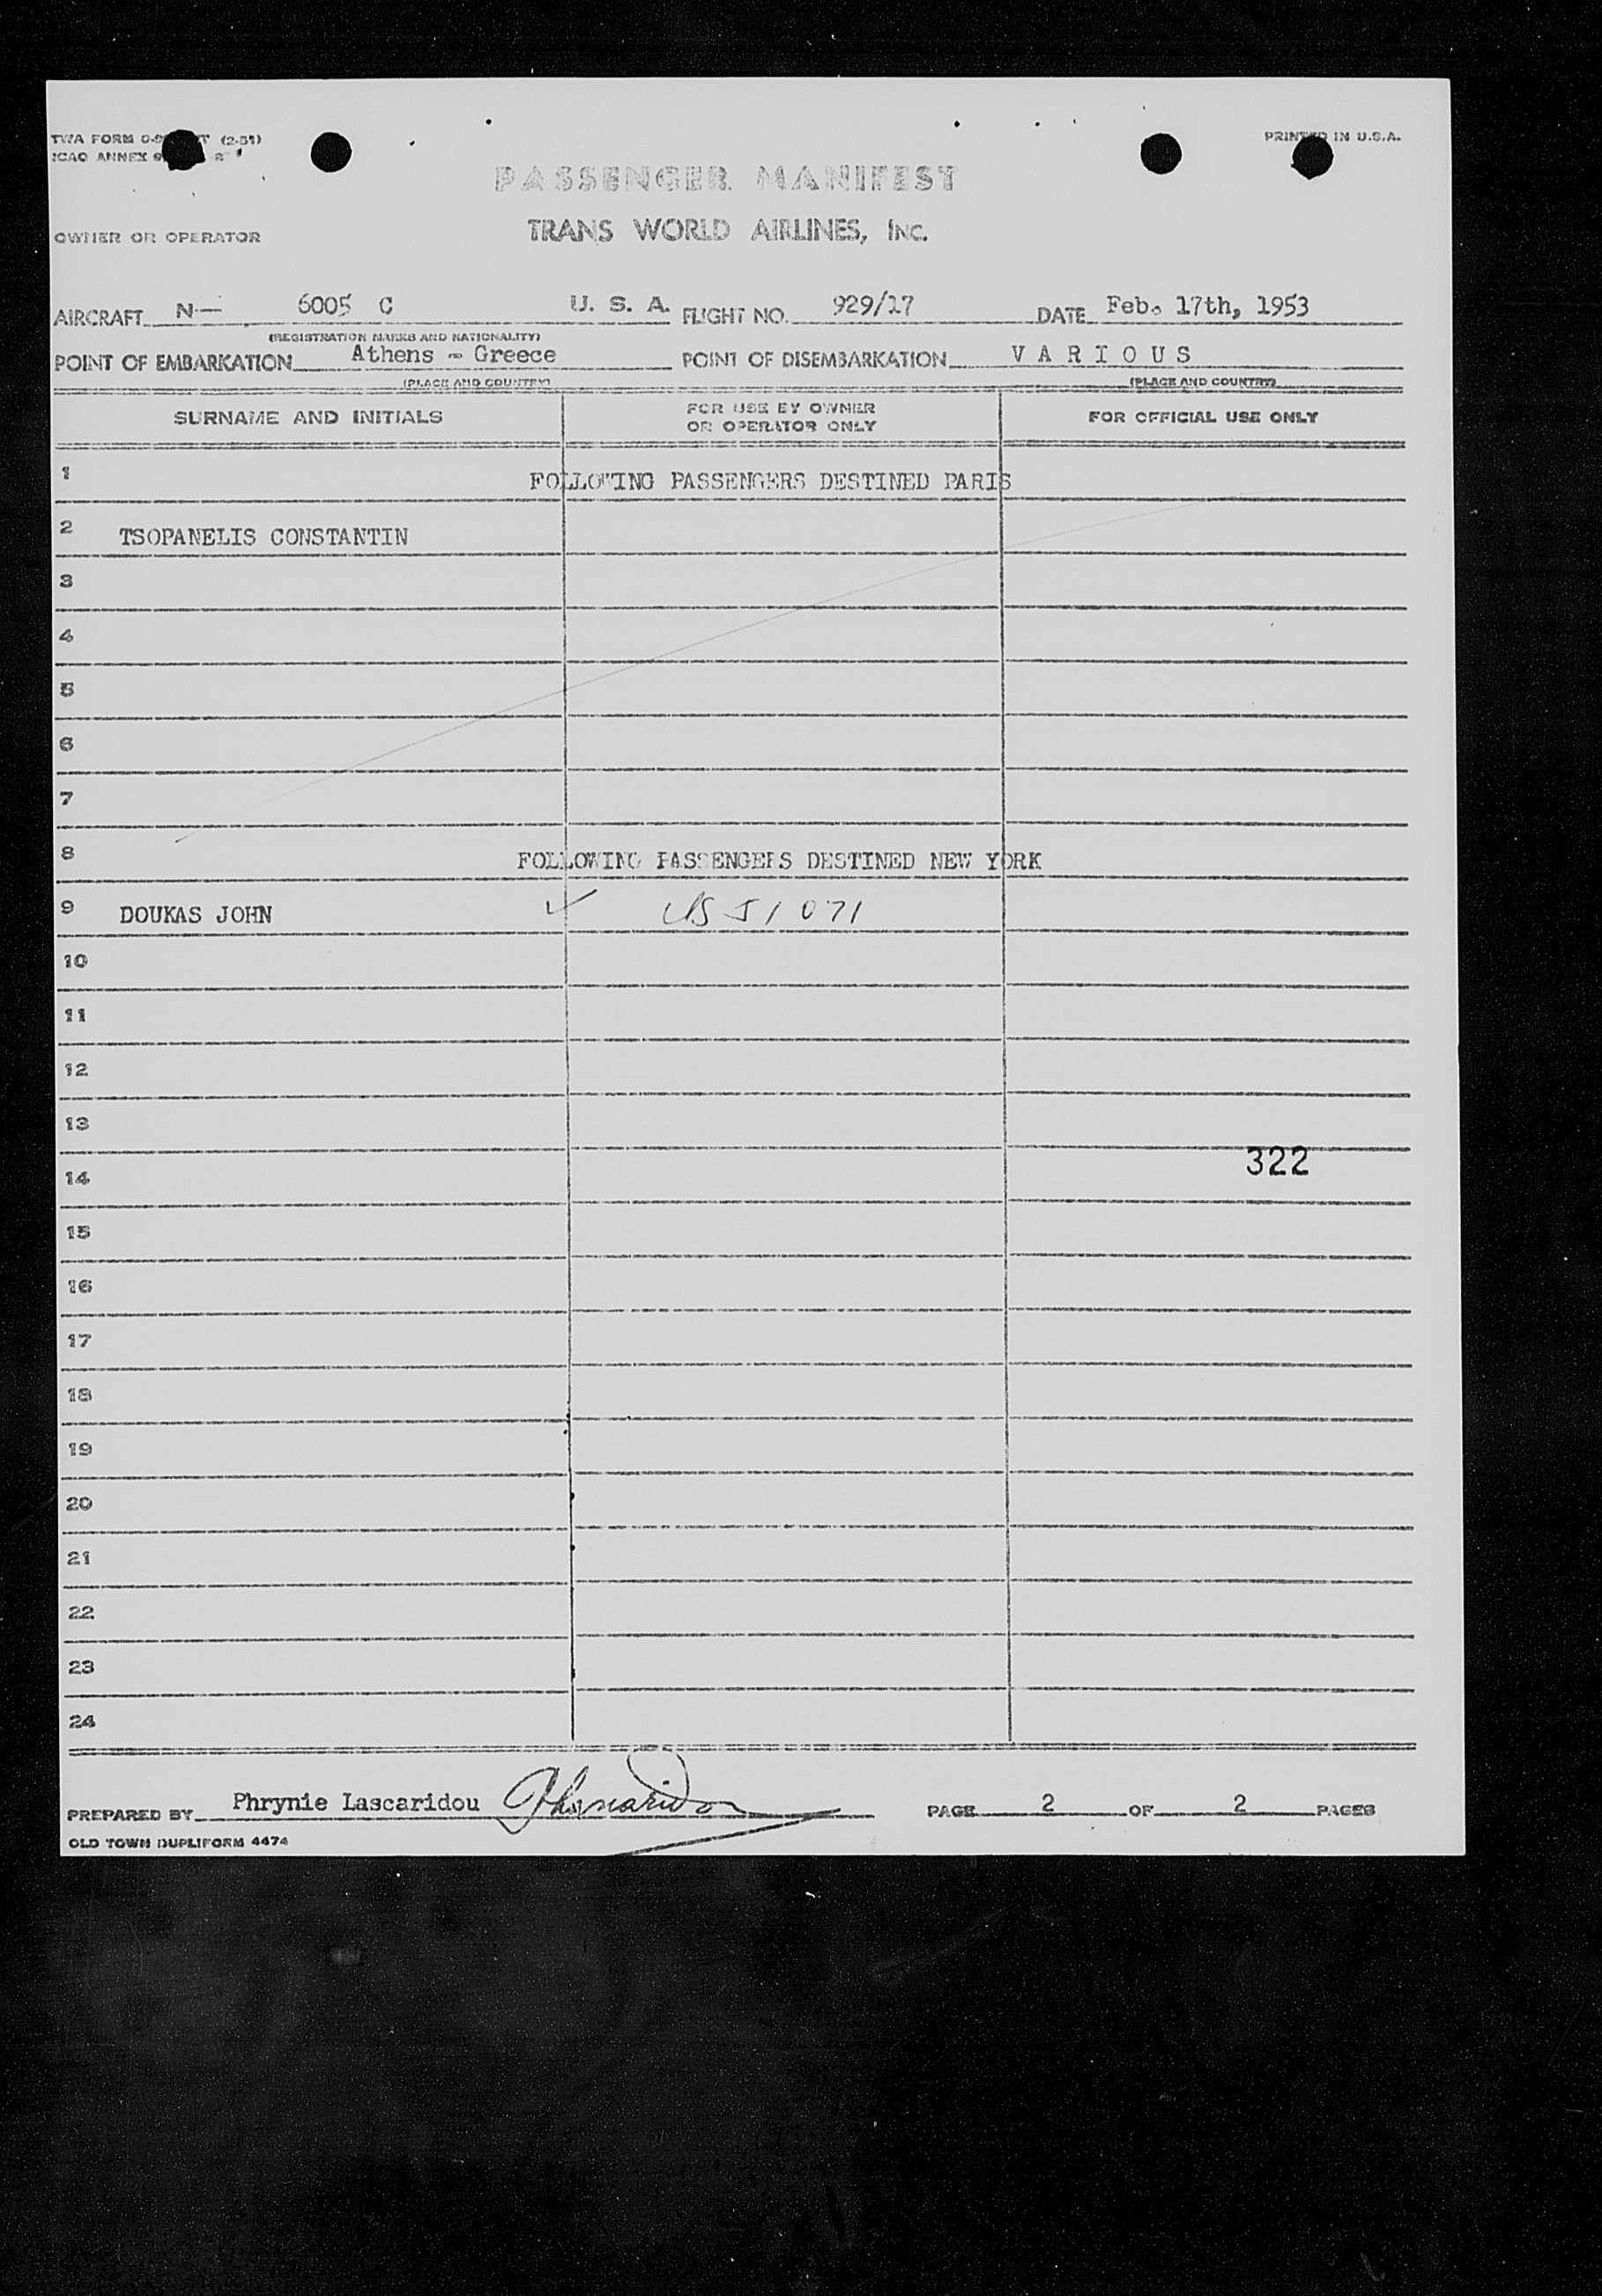 TWA FORM (2-51)
PRINTED IN U.S.A.
ICAO ANNEX 9
PASSENGER MANIFEST
OWNER OR OPERATOR
TRANS WORLD AIRLINES, INC.
AIRCRAFT N— 6005 C U. S. A. FLIGHT NO. 929/17 DATE Feb. 17th, 1953
(REGISTRATION MARKS AND NATIONALITY)
POINT OF EMBARKATION Athens - Greece POINT OF DISEMBARKATION V A R I O U S
(PLACE AND COUNTRY) (PLACE AND COUNTRY)
SURNAME AND INITIALS FOR USE BY OWNER OR OPERATOR ONLY FOR OFFICIAL USE ONLY
1 FOLLOWING PASSENGERS DESTINED PARIS
2 TSOPANELIS CONSTANTIN
3
4
5
6
7
8 FOLLOWING PASSENGERS DESTINED NEW YORK
9 DOUKAS JOHN ✓ US 51071
10
11
12
13
322
14
15
16
17
18
19
20
21
22
23
24
PREPARED BY Phrynie Lascaridou PAGE 2 OF 2 PAGES
OLD TOWN DUPLIFORM 4474